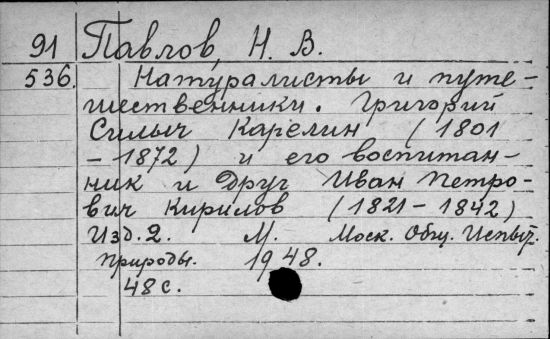 91 Павлов, Н. В.
536. Натуралисты и путе-
шественники. Григорий
Силыч Карелин (1801
- 1872) и его воспитан-
ник и друг Иван Петро-
вич Кирилов (1821 - 1842)
Изд. 2. М. Моск. Общ. Испыт.
природы. 1948.
48 с.